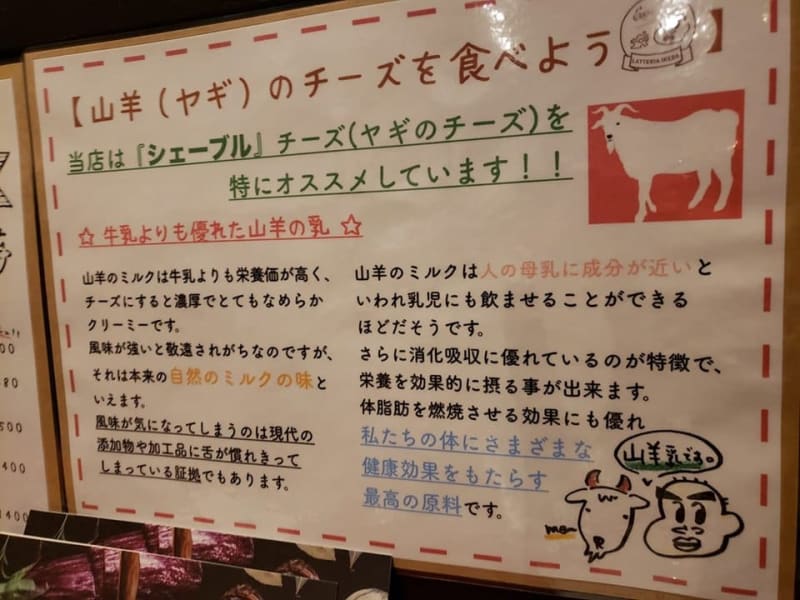 【山羊（ヤギ）のチーズを食べよう】
LATTERIA IKEDA
当店は『シェーブル』チーズ(ヤギのチーズ)を
特にオススメしています！！
☆ 牛乳よりも優れた山羊の乳 ☆
山羊のミルクは牛乳よりも栄養価が高く、
チーズにすると濃厚でとてもなめらか
クリーミーです。
風味が強いと敬遠されがちなのですが、
それは本来の自然のミルクの味と
いえます。
風味が気になってしまうのは現代の
添加物や加工品に舌が慣れきって
しまっている証拠でもあります。
山羊のミルクは人の母乳に成分が近いと
いわれ乳児にも飲ませることができる
ほどだそうです。
さらに消化吸収に優れているのが特徴で、
栄養を効果的に摂る事が出来ます。
体脂肪を燃焼させる効果にも優れ
私たちの体にさまざまな
健康効果をもたらす
最高の原料です。
00
80
500
400
1400